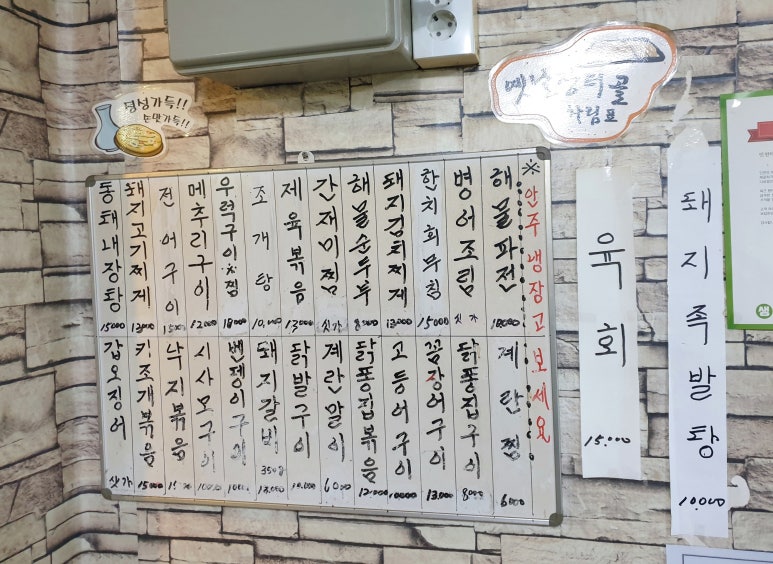 정성가득!!
손맛가득!!
차림표
※ 안주 냉장고 보세요
해물파전 18000
병어조림 싯가
한치회무침 15000
돼지김치찌게 13000
해물순두부 8000
간재미찜 싯가
제육볶음 13000
조개탕 10,000
우럭구이,찜 18000
메추리구이 12000
전어구이 15000
돼지고기찌게 13000
동태내장탕 15000
계란찜 6000
닭똥집구이 8000
꼼장어구이 13000
고등어구이 10000
닭똥집볶음 12000
계란말이 6000
닭발구이 10,000
돼지갈비 350g 13,000
벤뎅이구이
시사모구이
낙지볶음
키조개볶음 15000
갑오징어 싯가
육회 15.000
돼지족발탕 10,000
생